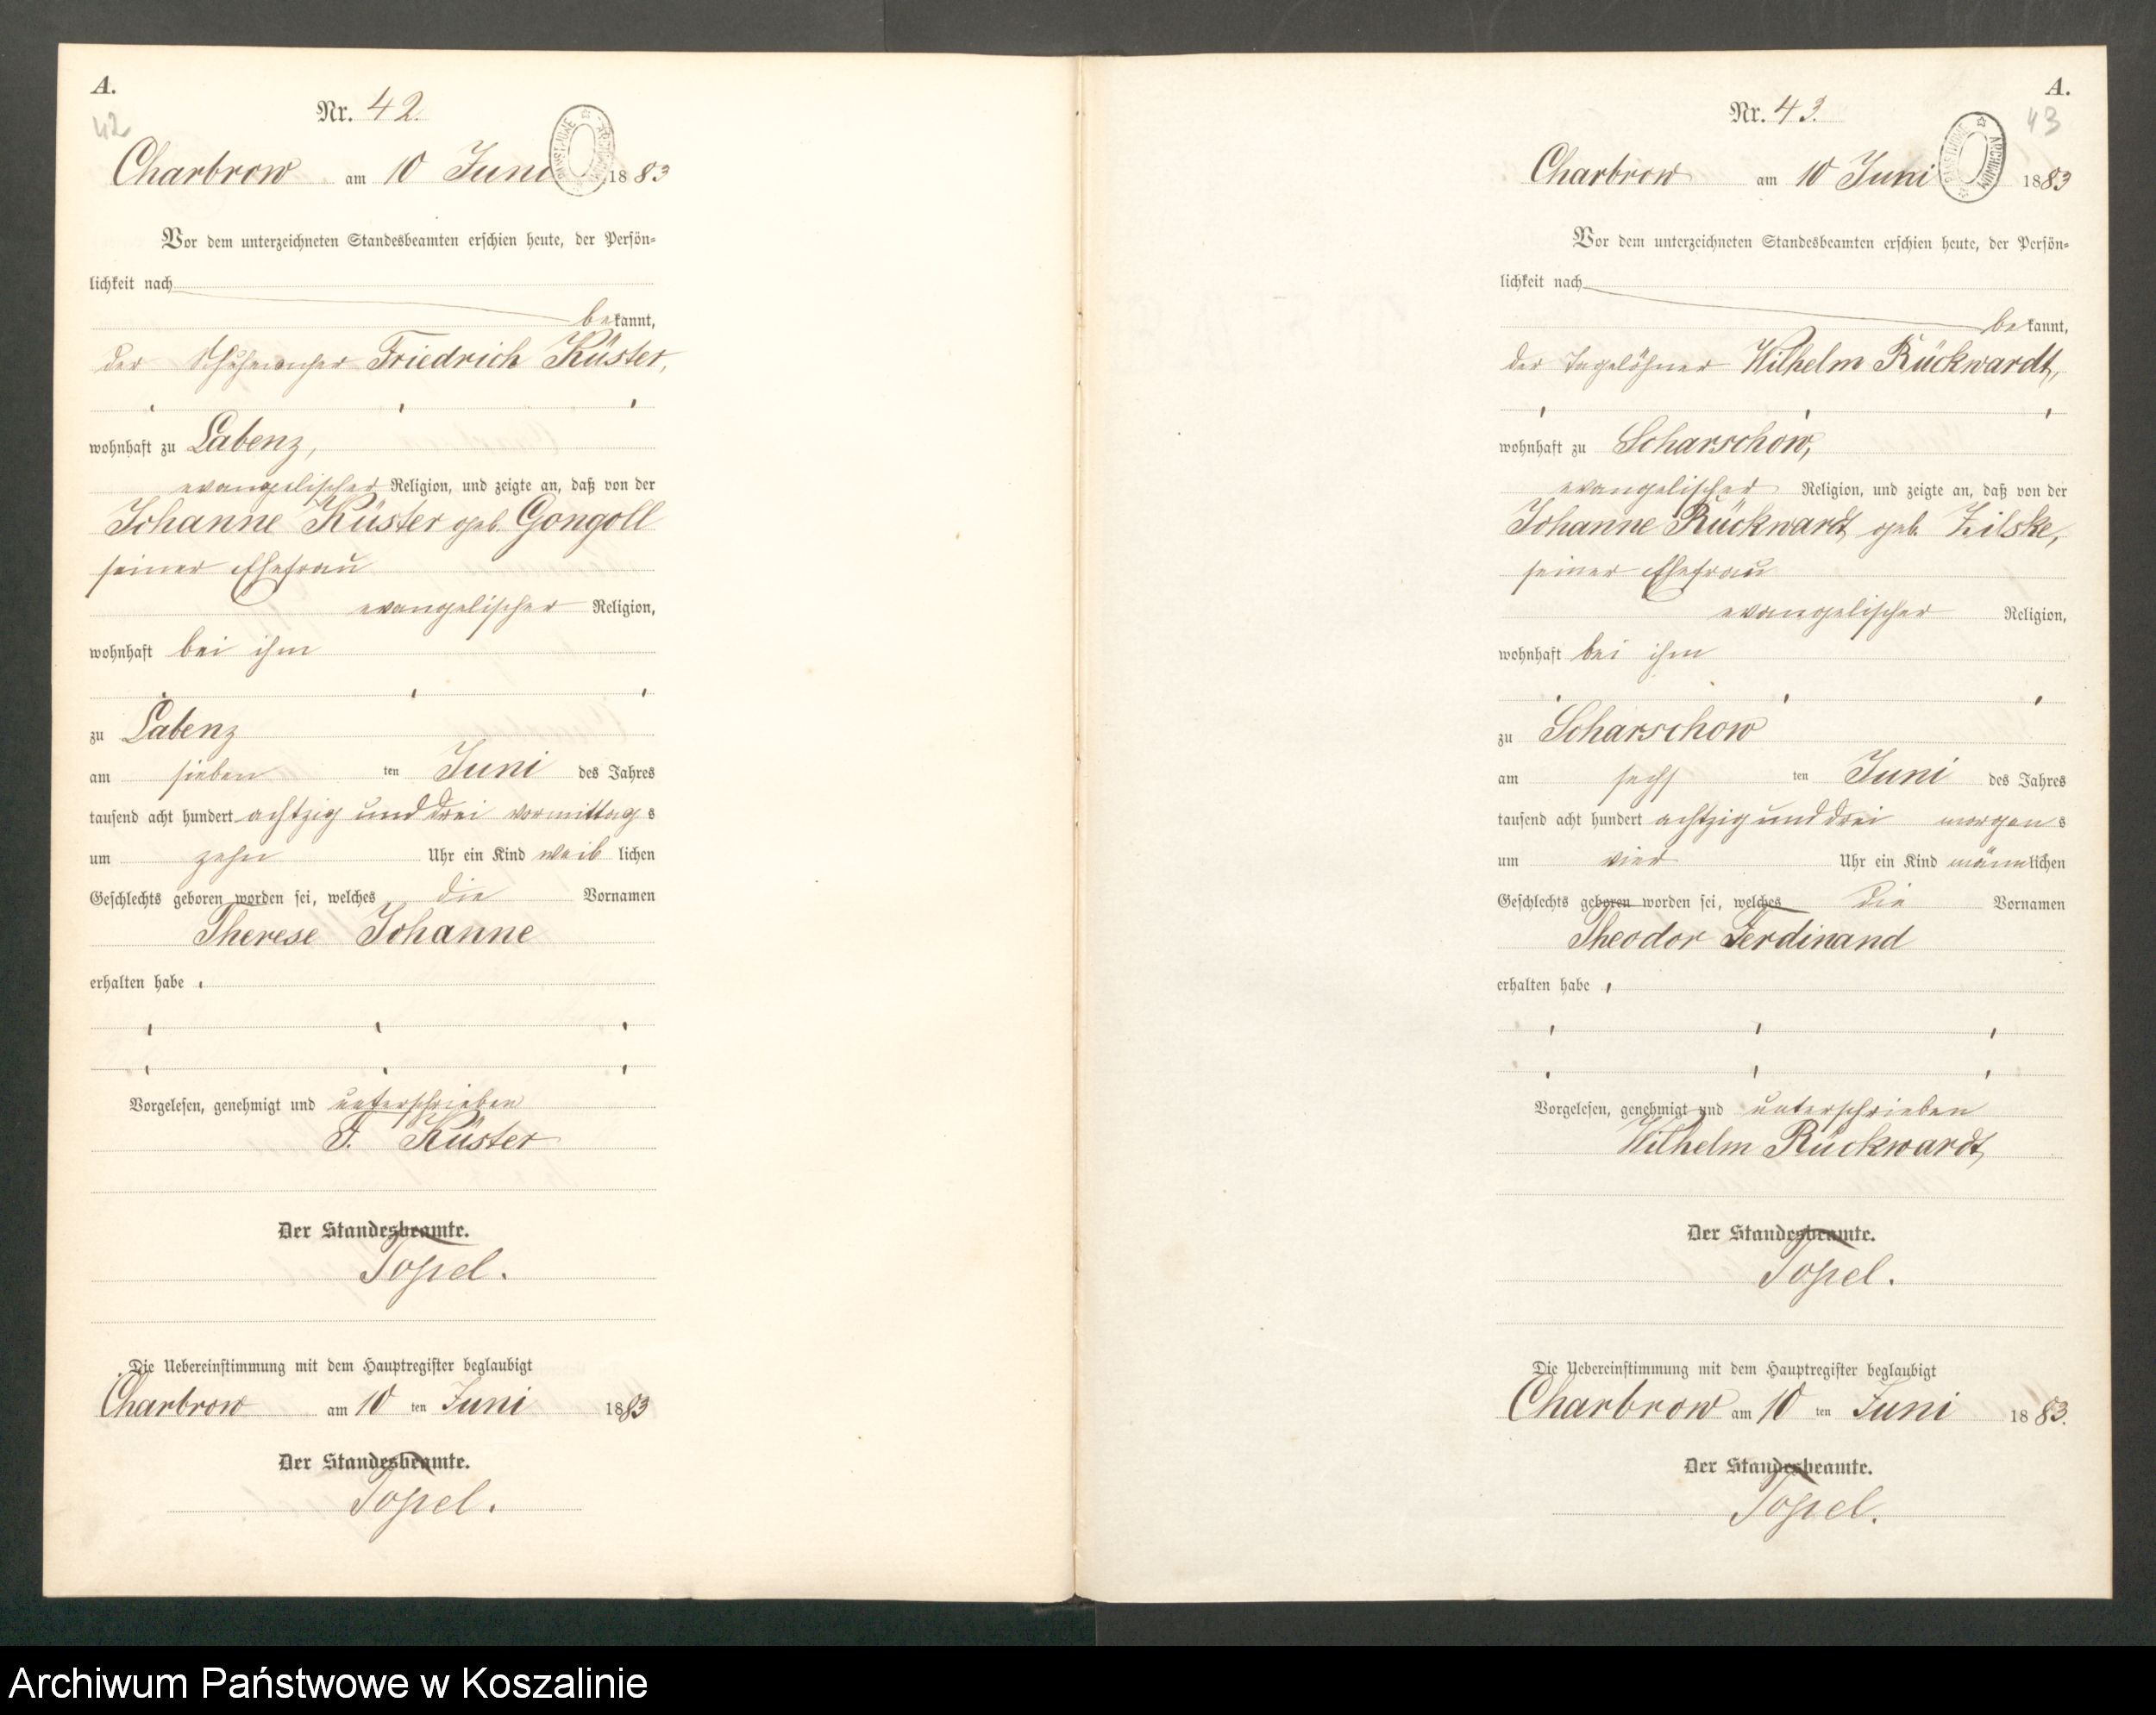 A.
42
Nr. 42.
Charbrow am 10 Juni 1883
Vor dem unterzeichneten Standesbeamten erschien heute, der Persön-
lichkeit nach
bekannt,
der Schuhmacher Friedrich Küster,
wohnhaft zu Labenz,
evangelischer Religion, und zeigte an, daß von der
Johanne Küster geb. Gongoll
seiner Ehefrau
evangelischer Religion,
wohnhaft bei ihm
zu Labenz
am sieben ten Juni des Jahres
tausend acht hundert achtzig und drei vormittags
um zehn Uhr ein Kind weiblichen
Geschlechts geboren worden sei, welches die Vornamen
Therese Johanne
erhalten habe
Vorgelesen, genehmigt und unterschrieben
F. Küster
Der Standesbeamte.
Die Uebereinstimmung mit dem Hauptregister beglaubigt
Charbrow am 10 ten Juni 1883
Der Standesbeamte.
A.
43
Nr. 43.
Charbrow am 10 Juni 1883
ARCHIWUM
Vor dem unterzeichneten Standesbeamten erschien heute, der Persön-
lichkeit nach
bekannt,
der Tagelöhner Wilhelm Rückwardt,
wohnhaft zu Scharschow,
evangelischer Religion, und zeigte an, daß von der
Johanne Rückwardt geb. Zilske,
seiner Ehefrau
evangelischer Religion,
wohnhaft bei ihm
zu Scharschow
am sechs ten Juni des Jahres
tausend acht hundert achtzig und drei morgens
um vier Uhr ein Kind männlichen
Geschlechts geboren worden sei, welches die Vornamen
Theodor Ferdinand
erhalten habe
Vorgelesen, genehmigt und unterschrieben
Wilhelm Rückwardt
Der Standesbeamte.
Die Uebereinstimmung mit dem Hauptregister beglaubigt
Charbrow am 10 ten Juni 1883.
Der Standesbeamte.
Archiwum Państwowe w Koszalinie